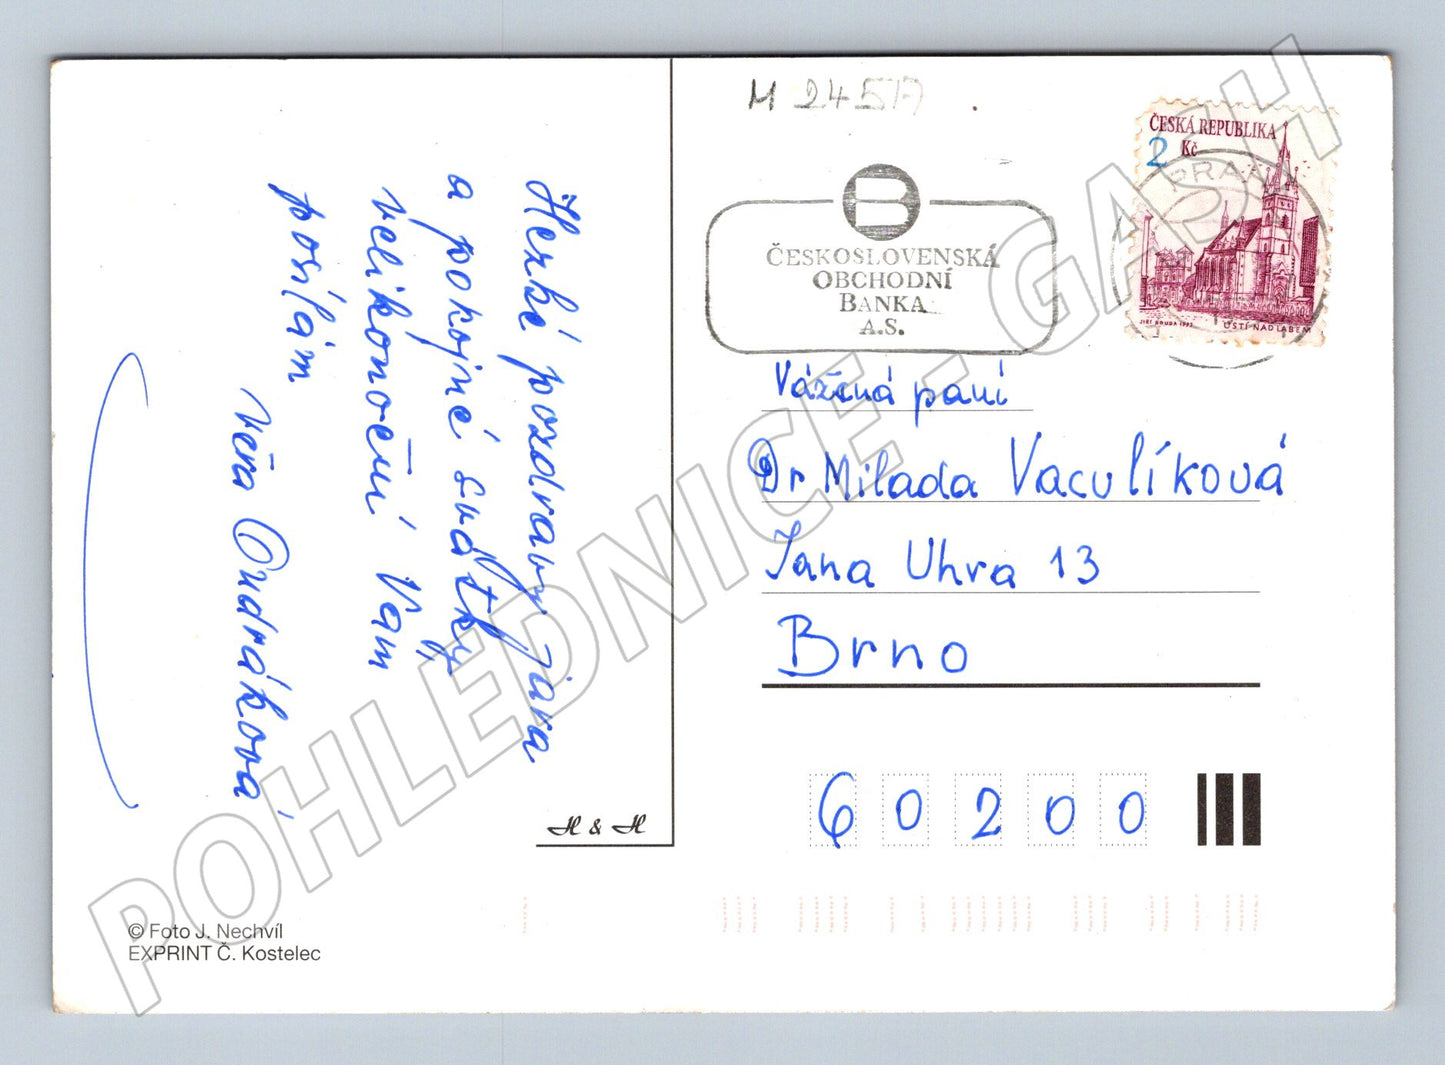 Hezké pozdravy jara
a pokojné svátky
velikonoční Vám
posílám
Věra Ondráková
H & H
© Foto J. Nechvíl
EXPRINT Č. Kostelec
M 2457
ČESKÁ REPUBLIKA
2 Kč
JIŘÍ BOUDA 1993
ÚSTÍ NAD LABEM
B
ČESKOSLOVENSKÁ
OBCHODNÍ
BANKA
A.S.
Vážená paní
Dr Milada Vaculíková
Jana Uhra 13
Brno
60200
POHLEDNICE - GASH